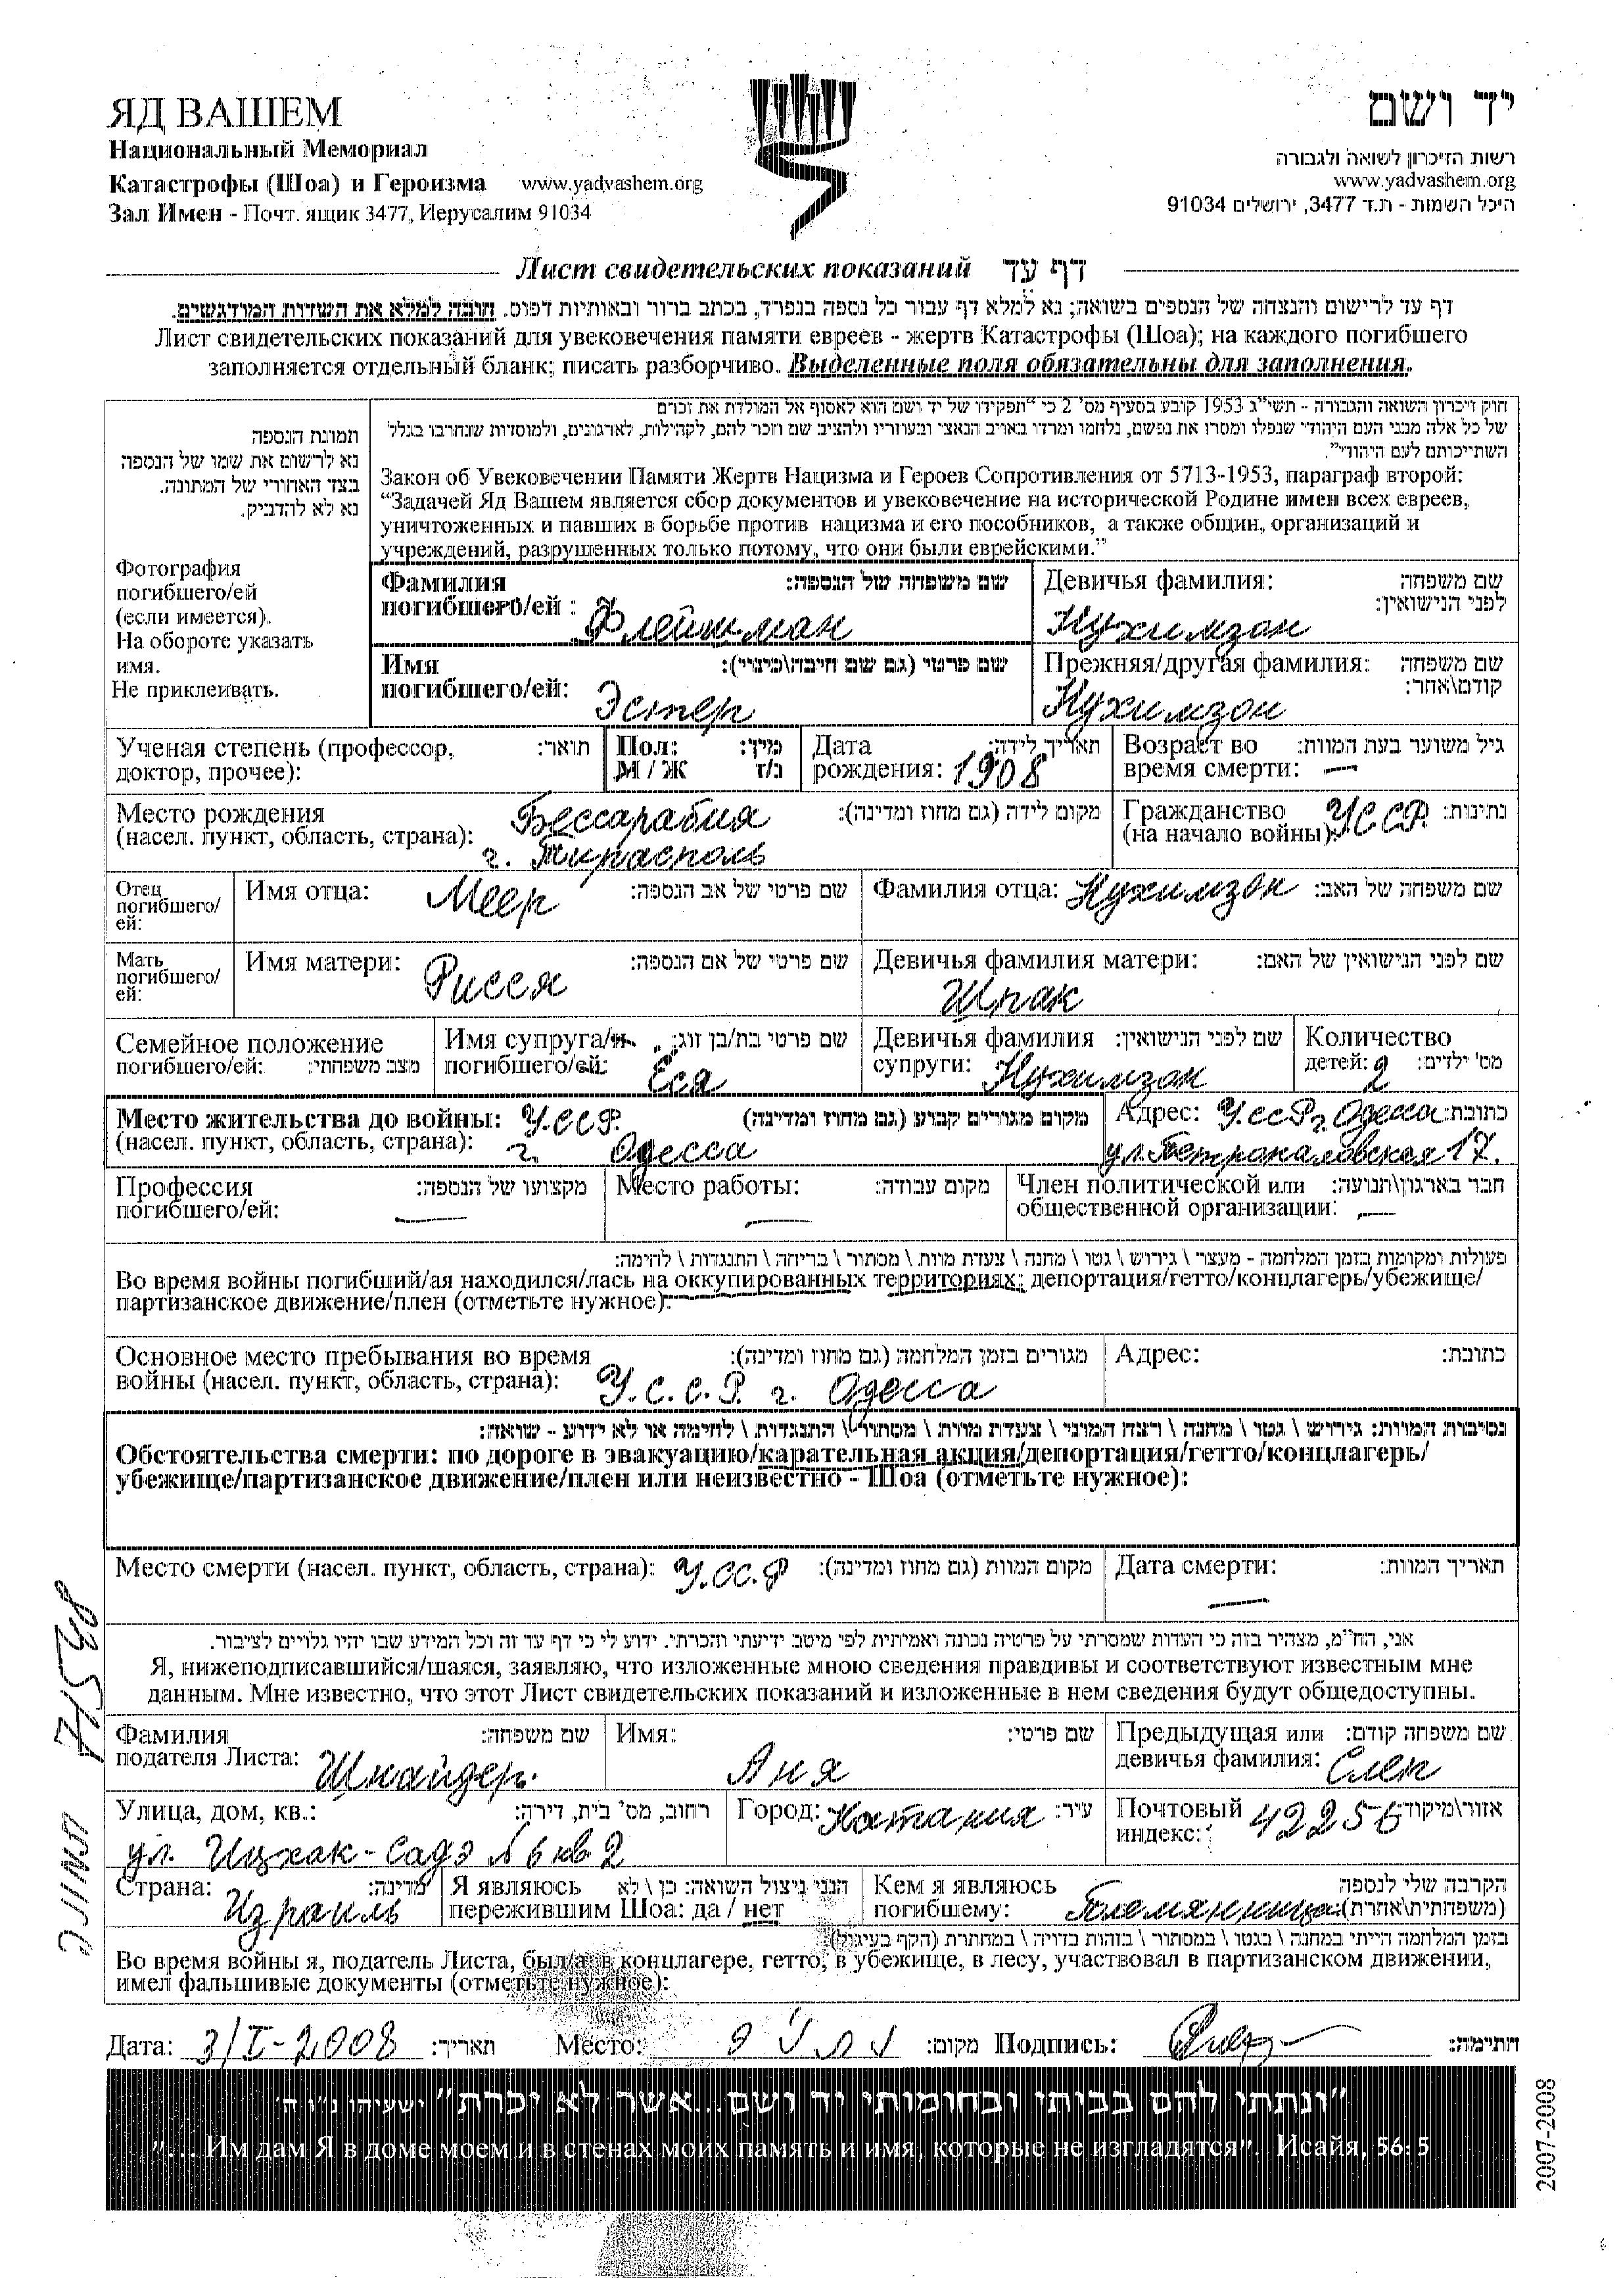 ЯД ВАШЕМ
Национальный Мемориал
Катастрофы (Шоа) и Героизма www.yadvashem.org
Зал Имен - Почт. ящик 3477, Иерусалим 91034
יד ושם
רשות הזיכרון לשואה ולגבורה
www.yadvashem.org
היכל השמות - ת.ד 3477, ירושלים 91034
Лист свидетельских показаний דף עד
דף עד לרישום והנצחה של הנספים בשואה; נא למלא דף עבור כל נספה בנפרד, בכתב ברור ובאותיות דפוס. חובה למלא את השדות המודגשים.
Лист свидетельских показаний для увековечения памяти евреев - жертв Катастрофы (Шоа); на каждого погибшего
заполняется отдельный бланк; писать разборчиво. Выделенные поля обязательны для заполнения.
תמונת הנספה
נא לרשום את שמו של הנספה
בצד האחורי של התמונה.
נא לא להדביק.
Фотография
погибшего/ей
(если имеется).
На обороте указать
имя.
Не приклеивать.
חוק זיכרון השואה והגבורה - תשי"ג 1953 קובע בסעיף מס' 2 כי "תפקידו של יד ושם הוא לאסוף אל המולדת את זכרם
של כל אלה מבני העם היהודי שנפלו ומסרו את נפשם, נלחמו ומרדו באויב הנאצי ובעוזריו ולהציב שם וזכר להם, לקהילות, לארגונים, ולמוסדות שנחרבו בגלל
השתייכותם לעם היהודי".
Закон об Увековечении Памяти Жертв Нацизма и Героев Сопротивления от 5713-1953, параграф второй:
"Задачей Яд Вашем является сбор документов и увековечение на исторической Родине имен всех евреев,
уничтоженных и павших в борьбе против нацизма и его пособников, а также общин, организаций и
учреждений, разрушенных только потому, что они были еврейскими."
Фамилия שם משפחה של הנספה:
погибшего/ей : Флейшман
Девичья фамилия: שם משפחה
לפני הנישואין:
Нухимзон
Имя שם פרטי (גם שם חיבה\כינוי):
погибшего/ей: Эстер
Прежняя/другая фамилия: שם משפחה
קודם\אחר:
Нухимзон
Ученая степень (профессор, תואר:
доктор, прочее):
Пол: מין:
М / Ж ז/נ
Дата תאריך לידה:
рождения: 1908
Возраст во גיל משוער בעת המוות:
время смерти: —
Место рождения Бессарабия מקום לידה (גם מחוז ומדינה):
(насел. пункт, область, страна): г. Тирасполь
Гражданство УССР. נתינות:
(на начало войны):
Отец
погибшего/
ей:
Имя отца: Меер שם פרטי של אב הנספה:
Фамилия отца: Нухимзон שם משפחה של האב:
Мать
погибшего/
ей:
Имя матери: Рисся שם פרטי של אם הנספה:
Девичья фамилия матери: שם לפני הנישואין של האם:
Шпак
Семейное положение
погибшего/ей: מצב משפחתי:
Имя супруга/и שם פרטי בת/בן זוג:
погибшего/ей: Еся
Девичья фамилия שם לפני הנישואין:
супруги: Нухимзон
Количество
детей: 2 מס' ילדים:
Место жительства до войны: У.ССР. מקום מגורים קבוע (גם מחוז ומדינה)
(насел. пункт, область, страна): г. Одесса
Адрес: У.ссР г. Одесса כתובת:
ул. Петропаловская 17.
Профессия מקצועו של הנספה:
погибшего/ей: —
Место работы: מקום עבודה:
—
Член политической или חבר בארגון\תנועה:
общественной организации: —
פעולות ומקומות בזמן המלחמה - מעצר \ גירוש \ גטו \ מחנה \ צעדת מוות \ מסתור \ בריחה \ התנגדות \ לחימה:
Во время войны погибший/ая находился/лась на оккупированных территориях: депортация/гетто/концлагерь/убежище/
партизанское движение/плен (отметьте нужное):
Основное место пребывания во время מגורים בזמן המלחמה (גם מחוז ומדינה):
войны (насел. пункт, область, страна): У.С.С.Р. г. Одесса
Адрес: כתובת:
נסיבות המוות: גירוש \ גטו \ מחנה \ רצח המוני \ צעדת מוות \ מסתור \ התנגדות \ לחימה או לא ידוע - שואה:
Обстоятельства смерти: по дороге в эвакуацию/карательная акция/депортация/гетто/концлагерь/
убежище/партизанское движение/плен или неизвестно - Шоа (отметьте нужное):
Место смерти (насел. пункт, область, страна): У.СС.Р מקום המוות (גם מחוז ומדינה):
Дата смерти: תאריך המוות:
—
אני, הח"מ, מצהיר בזה כי העדות שמסרתי על פרטיה נכונה ואמיתית לפי מיטב ידיעתי והכרתי. ידוע לי כי דף עד זה וכל המידע שבו יהיו גלויים לציבור.
Я, нижеподписавшийся/шаяся, заявляю, что изложенные мною сведения правдивы и соответствуют известным мне
данным. Мне известно, что этот Лист свидетельских показаний и изложенные в нем сведения будут общедоступны.
Фамилия שם משפחה:
подателя Листа: Шнайдер.
Имя: שם פרטי:
Аня
Предыдущая или שם משפחה קודם:
девичья фамилия: Слеп
Улица, дом, кв.: רחוב, מס' בית, דירה:
ул. Ицхак-Садэ №6 кв. 2
Город: Натания עיר:
Почтовый אזור\מיקוד:
индекс: 42256
Страна: מדינה:
Израиль
Я являюсь הנני ניצול השואה: כן \ לא
пережившим Шоа: да / нет
Кем я являюсь הקרבה שלי לנספה
погибшему: Племянница (משפחתית\אחרת):
בזמן המלחמה הייתי במחנה \ בגטו \ במסתור \ בזהות בדויה \ במחתרת (הקף בעיגול)
Во время войны я, податель Листа, был/а: в концлагере, гетто, в убежище, в лесу, участвовал в партизанском движении,
имел фальшивые документы (отметьте нужное):
Дата: 3/I-2008 תאריך: Место: מקום: Подпись: חתימה:
"ונתתי להם בביתי ובחומותי יד ושם...אשר לא יכרת" ישעיהו נ"ו ה'
"... Им дам Я в доме моем и в стенах моих память и имя, которые не изгладятся". Исайя, 56: 5
2007-2008